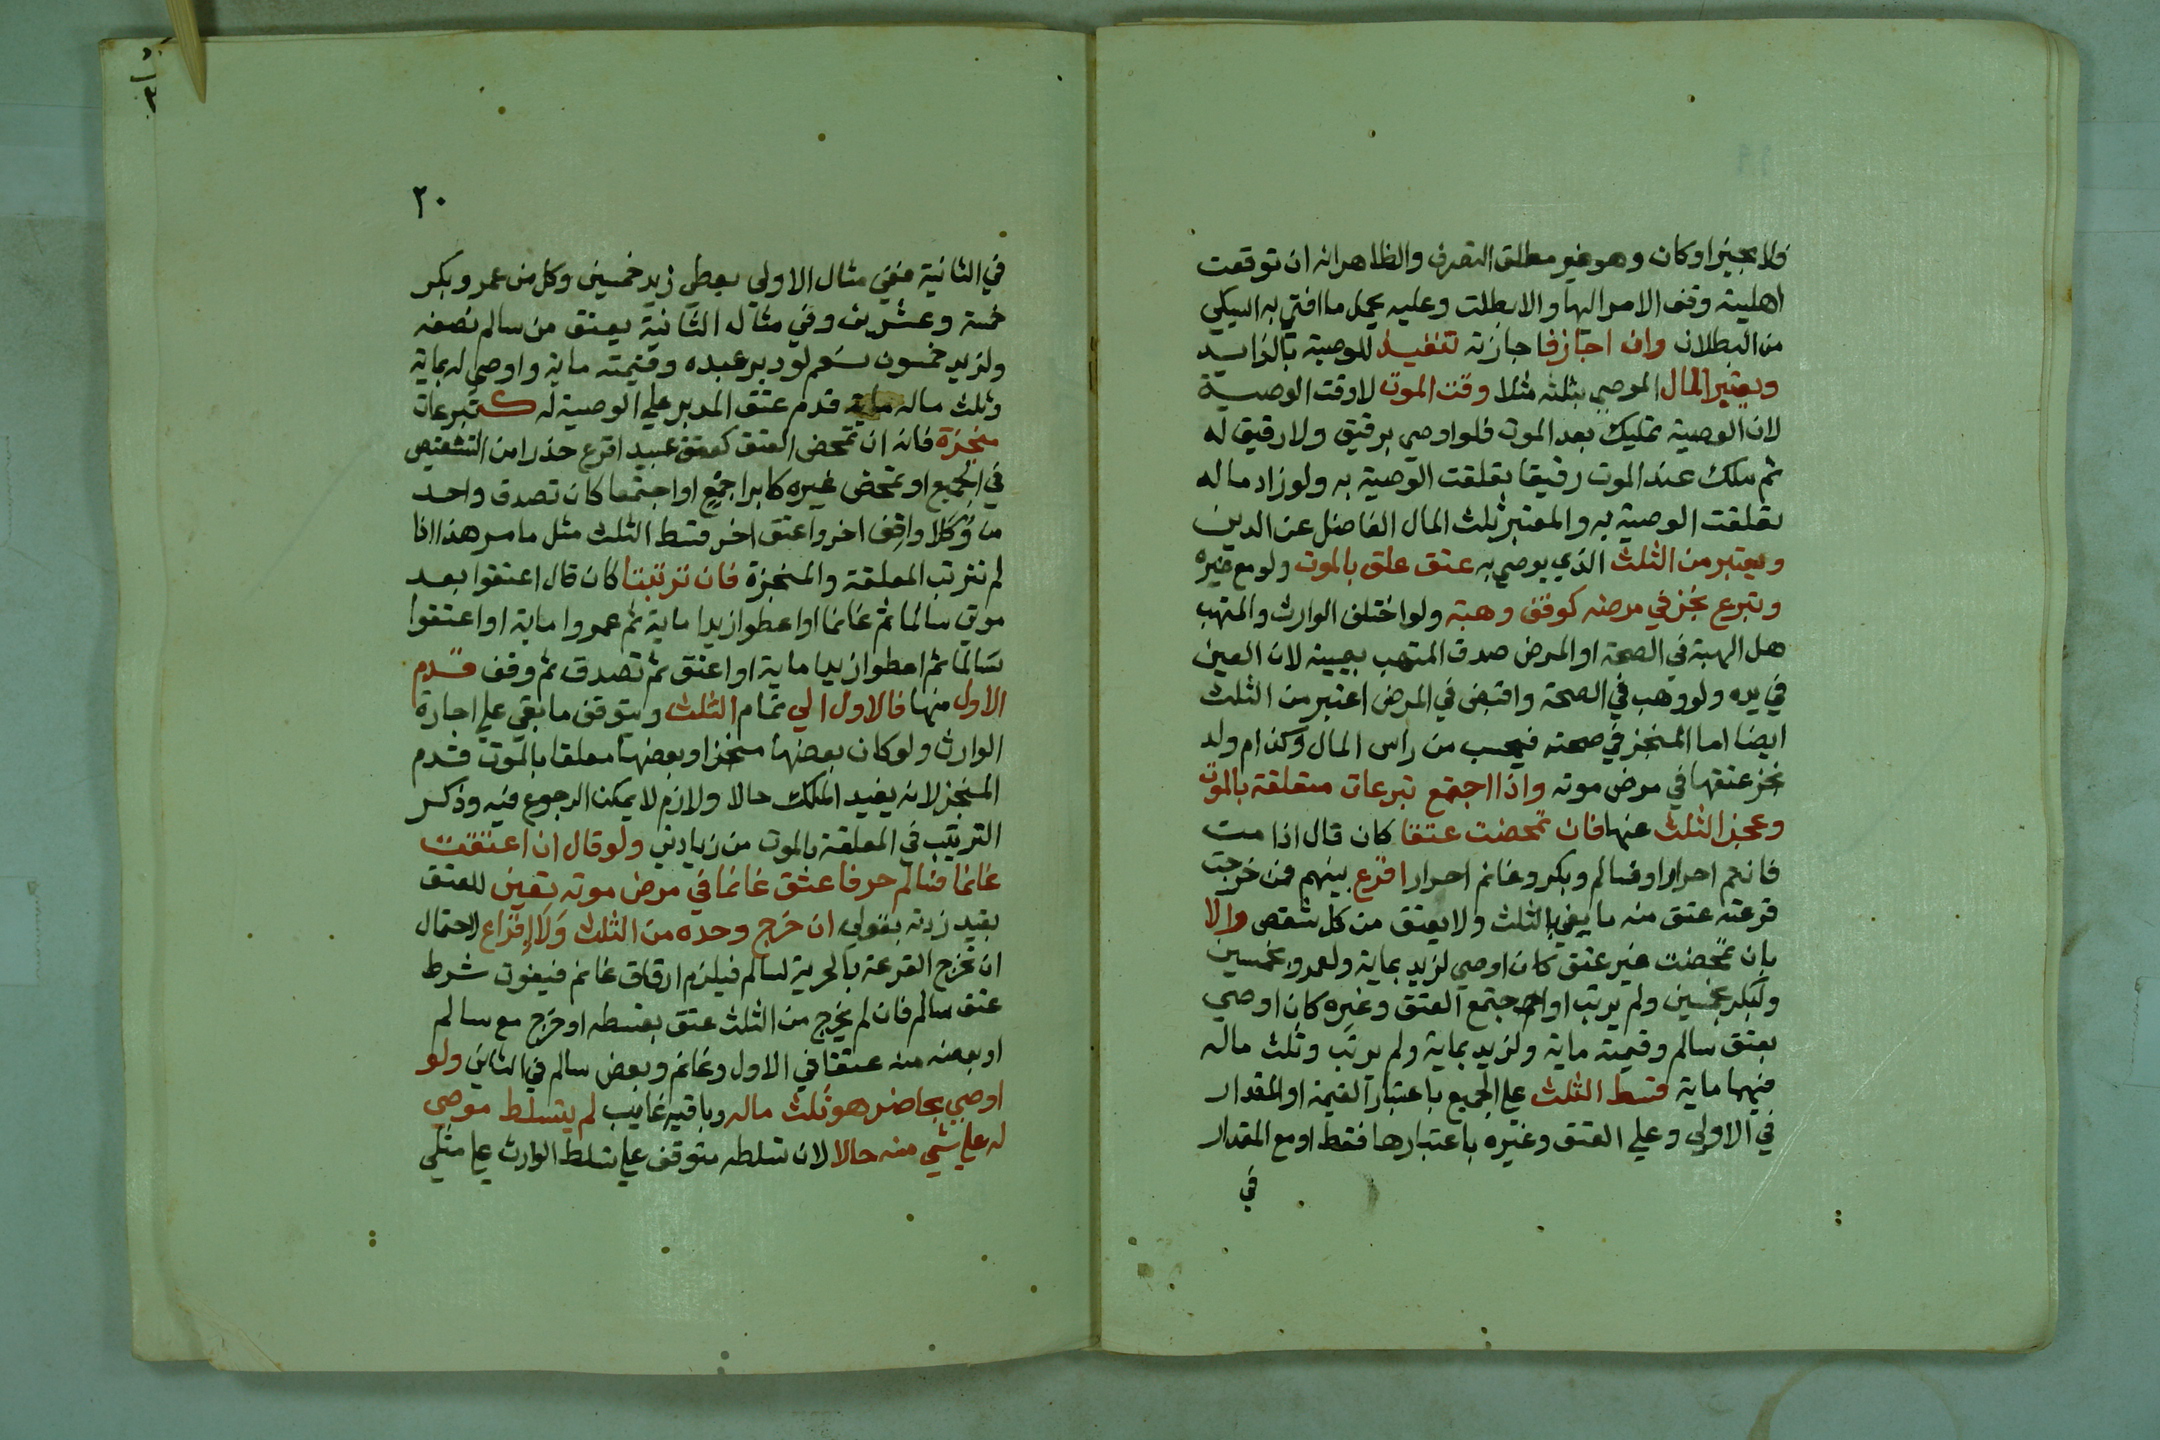 فلا مجيز او كان وهو غير مطلق التصرف والظاهر انه ان توقعت
اهليته وقف الامر اليها والا بطلت وعليه يحمل ما افتي به السبكي
من البطلان وان اجاز فاجازته تنفيذ للوصية بالزايد
ويعتبر المال الموصي بثلثه مثلا وقت الموت لا وقت الوصية
لان الوصية تمليك بعد الموت فلو اوصي برقيق ولا رقيق له
ثم ملك عند الموت رقيقا تعلقت الوصية به ولو زاد ماله
تعلقت الوصية به والمعتبر ثلث المال الفاضل عن الدين
ويعتبر من الثلث الذي يوصي به عتق علق بالموت ولو مع غيره
وتبرع نجز في مرضه كوقف وهبة ولو اختلف الوارث والمتهب
هل الهبة في الصحة او المرض صدق المتهب بيمينه لان العين
في يده ولو وهب في الصحة واقبض في المرض اعتبر من الثلث
ايضا اما المنجز في صحته فيحسب من راس المال وكذا ام ولد
نجز عتقها في مرض موته واذا اجتمع تبرعات متعلقة بالموت
وعجز الثلث عنها فان تمحضت عتقا كان قال اذا مت
فانتم احرار او فسالم وبكر وغانم احرار اقرع بينهم فمن خرجت
قرعته عتق منه ما يفي بالثلث ولا يعتق من كل شقص والا
بان تمحضت غير عتق كان اوصي لزيد بماية ولعمرو بخمسين
ولبكر بخمسين ولم يرتب او اجتمع العتق وغيره كان اوصي
بعتق سالم وقيمته ماية ولزيد بماية ولم يرتب وثلث ماله
فيهما ماية قسط الثلث علي الجميع باعتبار القيمة او المقدار
في الاولي وعلي العتق وغيره باعتبارها فقط او مع المقدار
في
٢٠
في الثانية ففي مثال الاولي يعطي زيد خمسين وكل من عمرو وبكر
خمسة وعشرين وفي مثال الثانية يعتق من سالم نصفه
ولزيد خمسون نعم لو دبر عبده وقيمته ماية واوصي له بماية
وثلث ماله ماية قدم عتق المدبر علي الوصية له كتبرعات
منجزة فانه ان تمحض العتق كعتق عبيد اقرع حذرا من التشقيص
في الجميع او تمحض غيره كابراء جمع او اجتمعا كان تصدق واحد
من وكلا واقف اخر واعتق اخر قسط الثلث مثل ما مر هذا اذا
لم تترتب المعلقة والمنجزة فان ترتبتا كان قال اعتقوا بعد
موتي سالما ثم غانما او اعطوا زيدا ماية ثم عمروا ماية او اعتقوا
سالما ثم اعطوا زيدا ماية او اعتق ثم تصدق ثم وقف قدم
الاول منها فالاول الي تمام الثلث ويتوقف ما بقي علي اجازة
الوارث ولو كان بعضها منجزا وبعضها معلقا بالموت قدم
المنجز لانه يفيد الملك حالا ولازم لا يمكن الرجوع فيه وذكر
الترتيب في المعلقة بالموت من زيادتي ولو قال ان اعتقت
غانما فسالم حر فاعتق غانما في مرض موته تعين للعتق
بقيد زدته بقولي ان خرج وحده من الثلث ولا اقراع لاحتمال
ان تخرج القرعة بالحرية لسالم فيلزم ارقاق غانم فيفوت شرط
عتق سالم فان لم يخرج من الثلث عتق بقسطه او خرج مع سالم
او بعضه منه عتقا في الاول وغانم وبعض سالم في الثاني ولو
اوصي بحاضر هو ثلث ماله وباقيه غايب لم يتسلط موصي
له علي شي منه حالا لان تسلطه متوقف علي تسلط الوارث علي مثلي